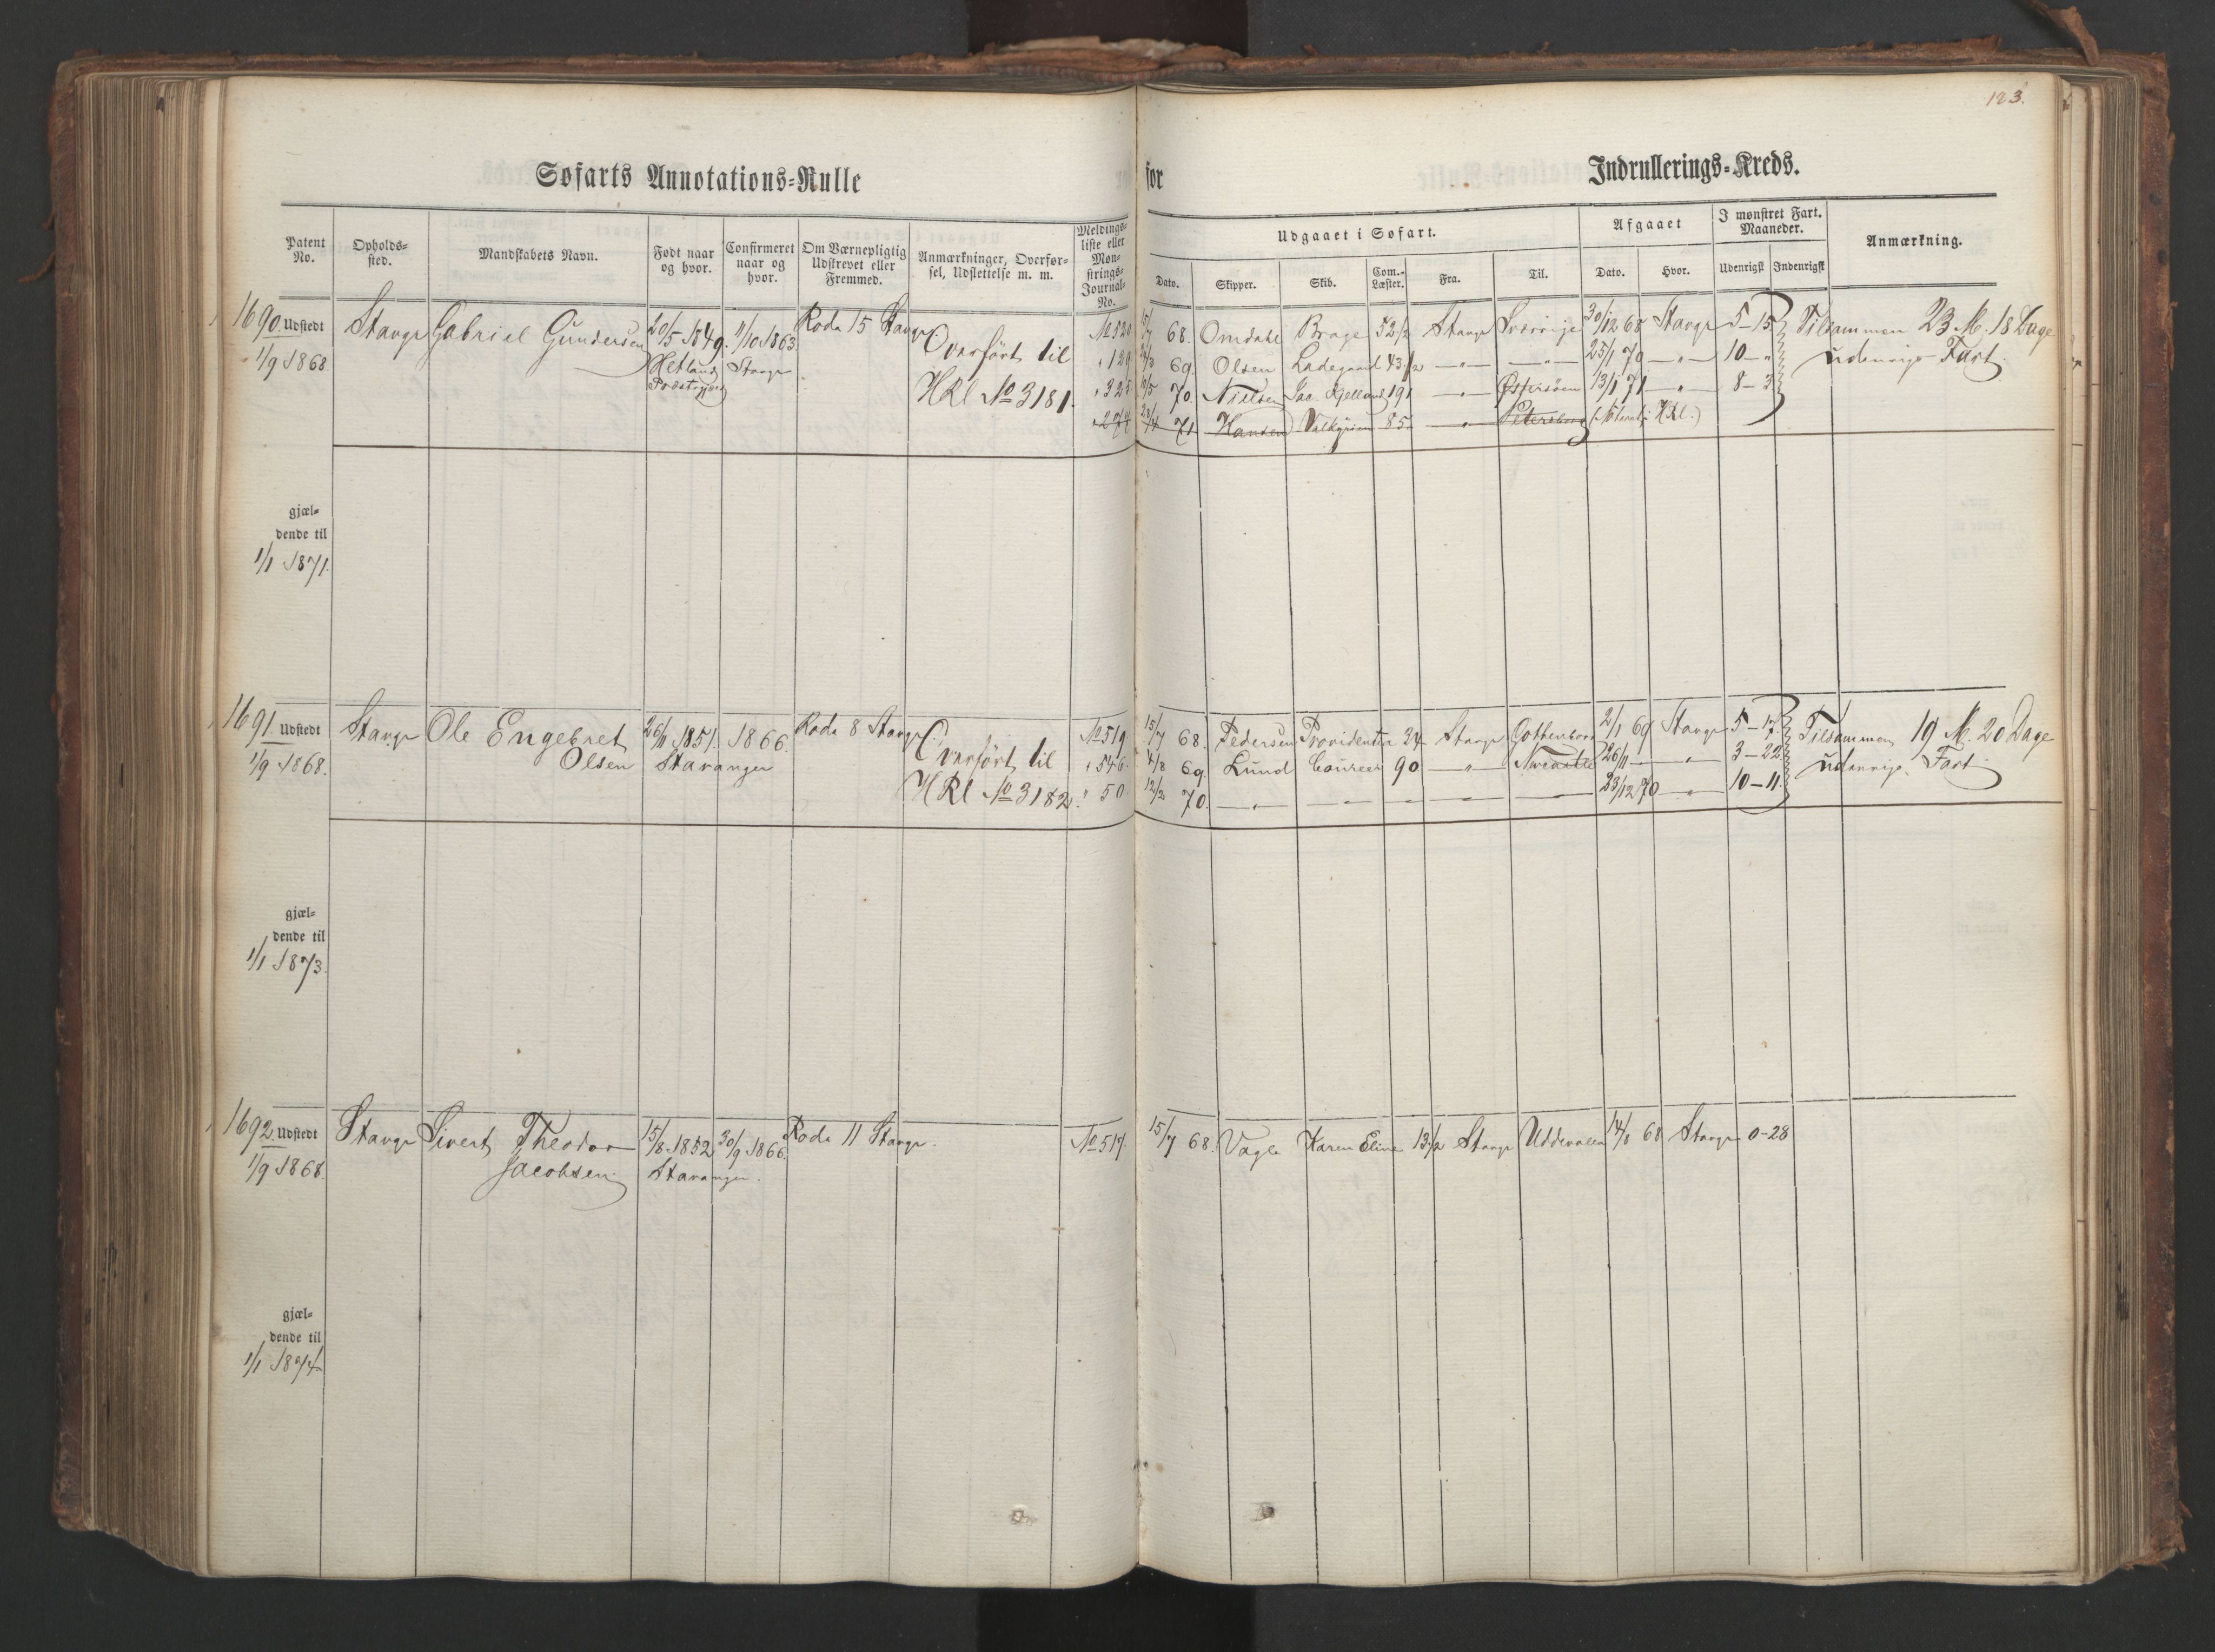 123.
Søfarts Annotations-Rulle for Indrullerings-Kreds.
Patent No. Opholds-sted. Mandskabets Navn. Født naar og hvor. Confirmeret naar og hvor. Om Værnepligtig Udskrevet eller Fremmed. Anmærkninger, Overførsel, Udslettelse m. m. Meldings-liste eller Mønstrings-Journal-No.
Udgaaet i Søfart. Afgaaet I mønstret Fart. Maaneder. Anmærkning.
Dato. Skipper. Skib. Com.-Læster. Fra. Til. Dato. Hvor. Udenrigsk Indenrigsk
1690 Udstedt Stavgr Gabriel Gundersen 20/5 1849. 11/10 1863. Rode 15 Stavgr Overført til No 520 15/7 68. Omdahl Brage 52 1/2 Stavgr Sverrige 30/12 68 Stavgr 5-15 Tilsammen 23 M. 18 Dage
1/9 1868 Hetland Stavgr HRl No 3181. " 129 69. Olsen Ladegaard 43 1/2 —"— —"— 25/1 70 —"— 10-" udenrigs Fart.
Præstegjeld " 325 10/5 70. Nielsen Jac. Kjelland 191 —"— Østersøen 13/1 71 —"— 8-3
" 274 71 Hansen Valkyrien 85 —"— Petersburg HRl.)
gjæl-
dende til
1/1 1871.
1691. Udstedt Stavgr Ole Engebret 26/11 1851. 1866. Rode 8 Stavgr Overført til No 519 15/7 68. Pedersen Providentia 24 Stavgr Gottenborg 2/1 69 Stavgr 5-17 Tilsammen 19 M. 20 Dage
1/9 1868. Olsen Stavanger HRl No 3182. " 546 4/8 69. Lund Coureer 90 —"— Newcastle 26/11 —"— 3-22 udenrigs Fart.
" 50 12/2 70. —"— —"— — — — 23/12 70 —"— 10-11.
gjæl-
dende til
1/1 1873.
1692 Udstedt Stavgr Sivert Theodor 15/8 1852 30/9 1866. Rode 11 Stavgr. No 517. 15/7 68. Vagle Karen Eline 13 1/2 Stavgr Uddevalla 14/8 68 Stavgr 0-28
1/9 1868. Jacobsen Stavanger.
gjæl-
dende til
1/1 1874